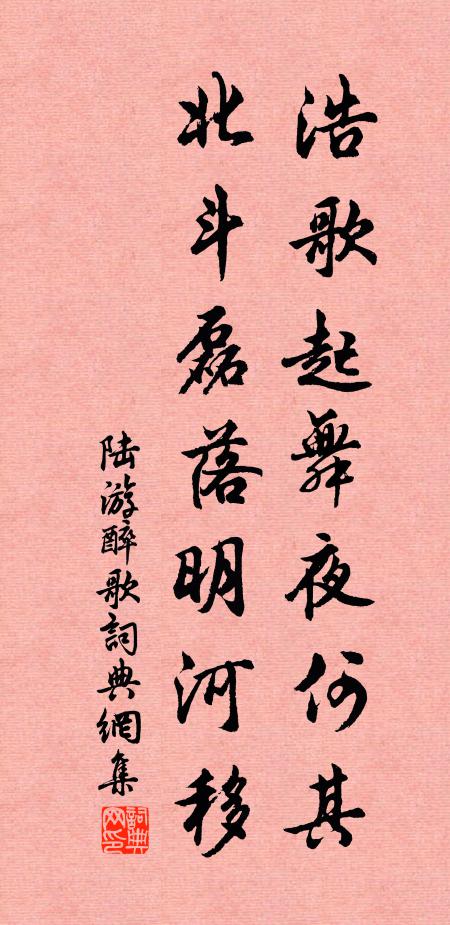 浩歌起舞夜何其
北斗磊落明河移
陆游醉歌詞典網集
詞典网印